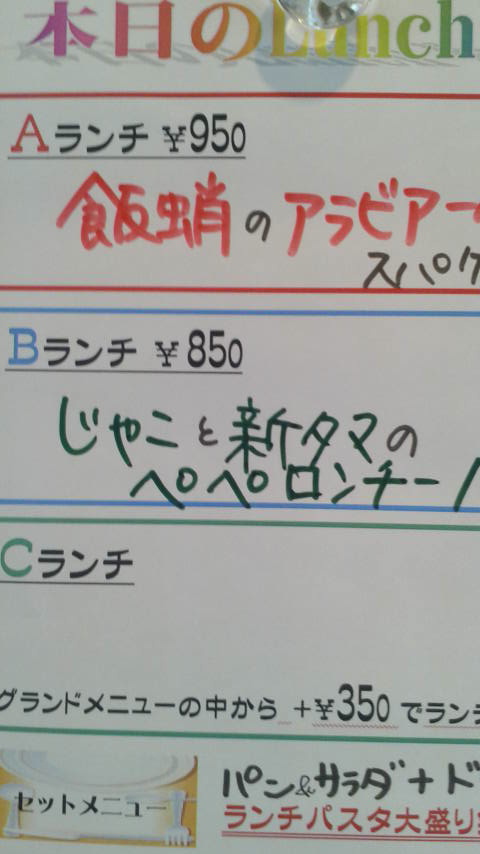 本日のLunch
Aランチ ¥950
飯蛸のアラビアー
スパゲ
Bランチ ¥850
じゃこと新タマの
ペペロンチーノ
Cランチ
グランドメニューの中から +¥350 でランチ
セットメニュー
パン&サラダ+ド
ランチパスタ大盛り